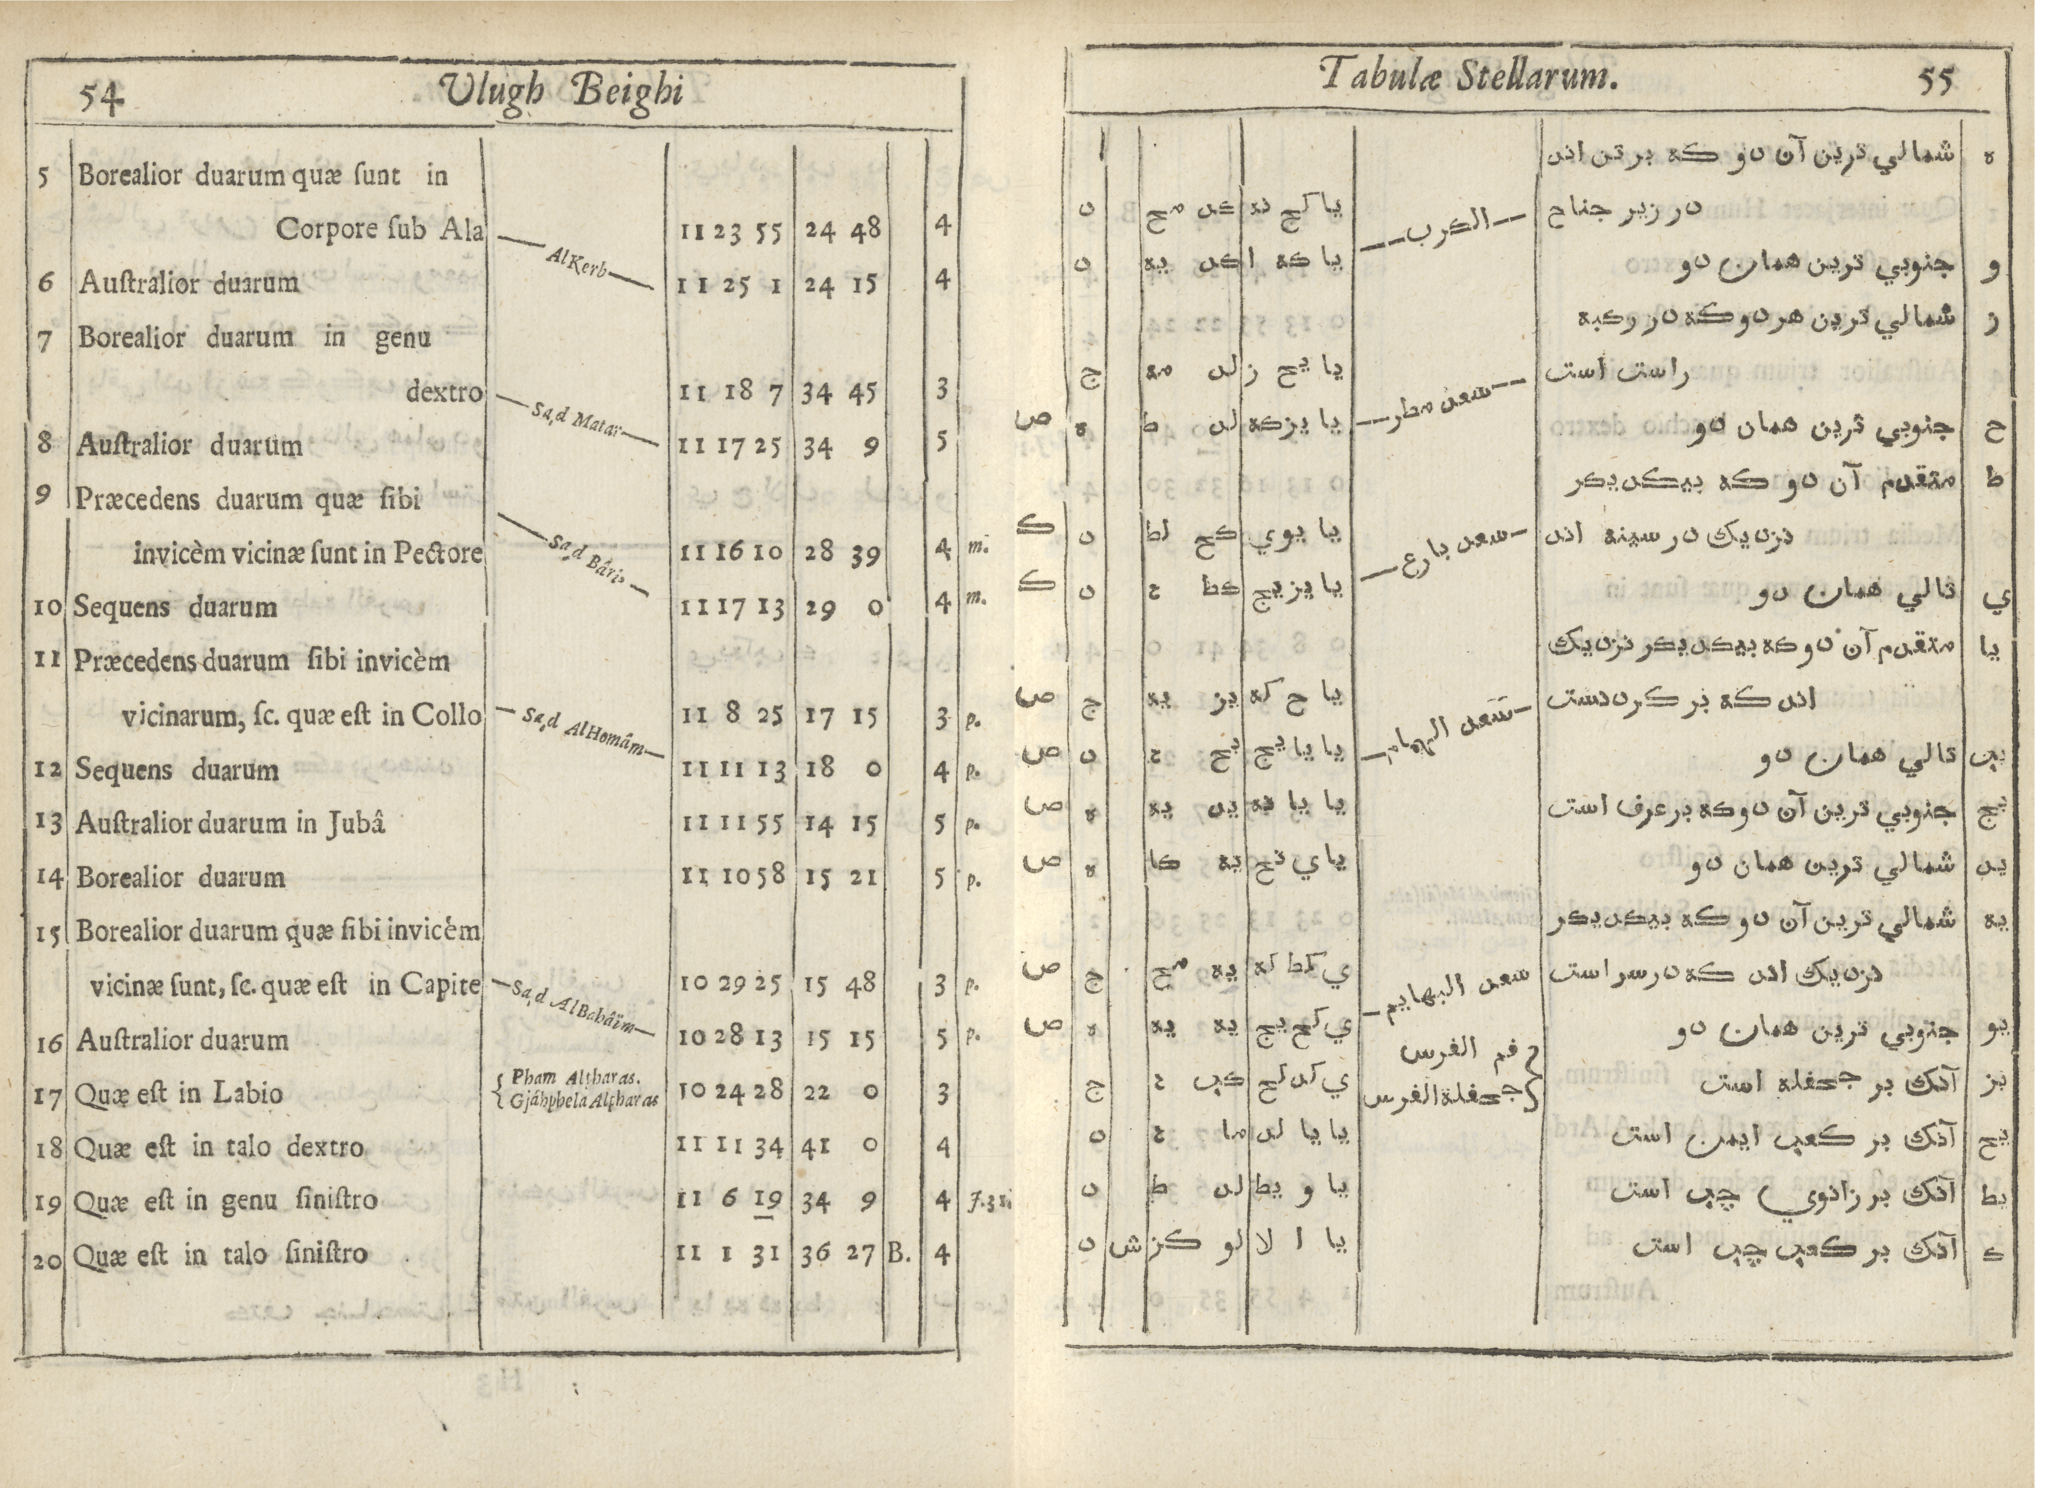 54 Ulugh Beighi
5 Borealior duarum quæ ſunt in
Corpore ſub Ala AlKerb 11 23 55 24 48 4
6 Auſtralior duarum 11 25 1 24 15 4
7 Borealior duarum in genu
dextro 11 18 7 34 45 3
8 Auſtralior duarum 11 17 25 34 9 5
9 Præcedens duarum quæ ſibi
invicèm vicinæ ſunt in Pectore 11 16 10 28 39 4 m.
10 Sequens duarum 11 17 13 29 0 4 m.
11 Præcedens duarum ſibi invicèm
vicinarum, ſc. quæ eſt in Collo 11 8 25 17 15 3 p.
12 Sequens duarum 11 11 13 18 0 4 p.
13 Auſtralior duarum in Jubâ 11 11 55 14 15 5 p.
14 Borealior duarum 11 10 58 15 21 5 p.
15 Borealior duarum quæ ſibi invicèm
vicinæ ſunt, ſc. quæ eſt in Capite 10 29 25 15 48 3 p.
16 Auſtralior duarum 10 28 13 15 15 5 p.
17 Quæ eſt in Labio 10 24 28 22 0 3
18 Quæ eſt in talo dextro 11 11 34 41 0 4
19 Quæ eſt in genu ſiniſtro 11 6 19 34 9 4
20 Quæ eſt in talo ſiniſtro 11 1 31 36 27 B. 4
Tabulæ Stellarum. 55
ه شمالي ترين آن دو كه بر تن اند
در زير جناح الكرب يا كج نه كد مح د
و جنوبي ترين همان دو يا كه ا كد يه د
ز شمالي ترين هر دو كه در ركبه
راست است سعد مطر يا يح ز لد مه ج
ح جنوبي ترين همان دو يا يز كه لد ط ه ص
ط متقدم آن دو كه بيكديكر
نزديك در سينه اند سعد بارع يا يو ي كح لط د ك
ي تالي همان دو يا يز يج كط د ك
يا متقدم آن دو كه بيكديكر نزديك
اند كه بر كردنست سعد الهمام يا ح كه يز يه ج ص
يب تالي همان دو يا يا يج يح د ص
يج جنوبي ترين آن دو كه بر عرف است يا يا نه يد يه ه ص
يد شمالي ترين همان دو يا ي نح يه كا ه ص
يه شمالي ترين آن دو كه بيكديكر
نزديك اند كه در سر است سعد البهايم ي كط كه يه مح ج ص
يو جنوبي ترين همان دو ي كح يج يه يه ه ص
فم الفرس
يز آنك بر جحفله است جحفلة الفرس ي كد كح كب ج
يح آنك بر كعب ايمن است يا يا لد ما د
يط آنك بر زانوي چپ است يا و يط لد ط د
ك آنك بر كعب چپ است يا ا لا لو كز ش د